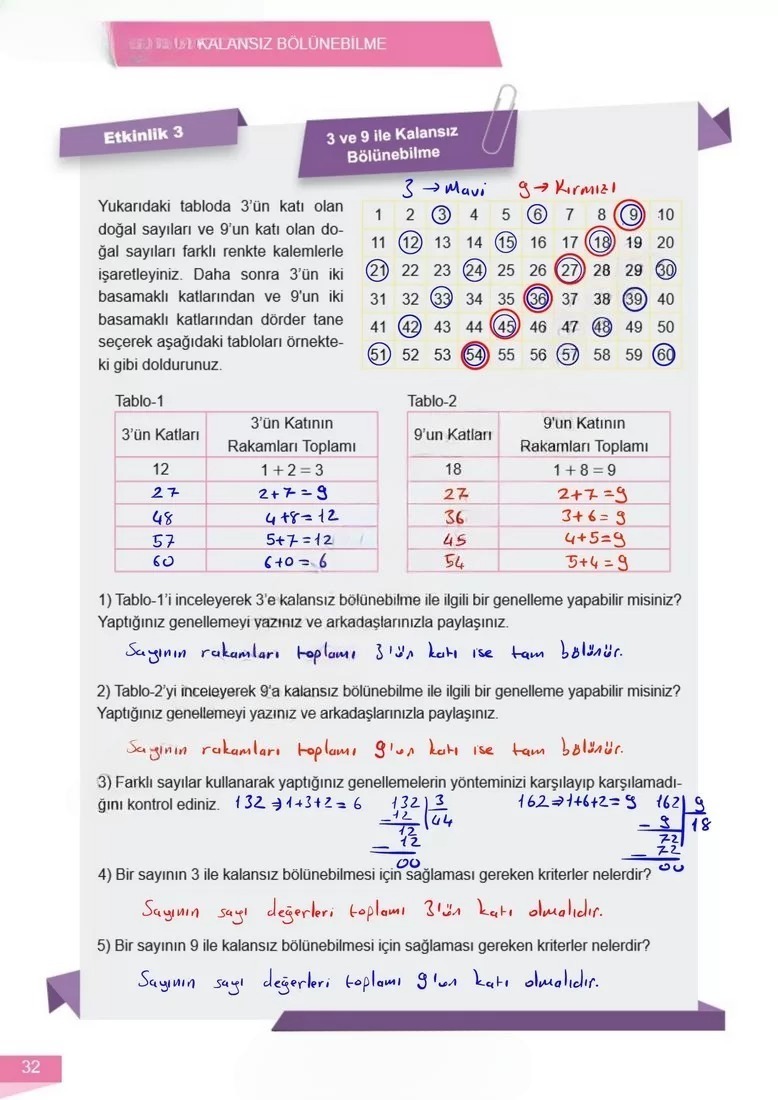 KALANSIZ BÖLÜNEBİLME
Etkinlik 3
3 ve 9 ile Kalansız
Bölünebilme
3 → Mavi 9 → Kırmızı
Yukarıdaki tabloda 3'ün katı olan
doğal sayıları ve 9'un katı olan do-
ğal sayıları farklı renkte kalemlerle
işaretleyiniz. Daha sonra 3'ün iki
basamaklı katlarından ve 9'un iki
basamaklı katlarından dörder tane
seçerek aşağıdaki tabloları örnekte-
ki gibi doldurunuz.
1 2 3 4 5 6 7 8 9 10
11 12 13 14 15 16 17 18 19 20
21 22 23 24 25 26 27 28 29 30
31 32 33 34 35 36 37 38 39 40
41 42 43 44 45 46 47 48 49 50
51 52 53 54 55 56 57 58 59 60
Tablo-1
3'ün Katları 3'ün Katının
Rakamları Toplamı
12 1 + 2 = 3
27 2+7=9
48 4+8=12
57 5+7=12
60 6+0=6
Tablo-2
9'un Katları 9'un Katının
Rakamları Toplamı
18 1 + 8 = 9
27 2+7=9
36 3+6=9
45 4+5=9
54 5+4=9
1) Tablo-1'i inceleyerek 3'e kalansız bölünebilme ile ilgili bir genelleme yapabilir misiniz?
Yaptığınız genellemeyi yazınız ve arkadaşlarınızla paylaşınız.
Sayının rakamları toplamı 3'ün katı ise tam bölünür.
2) Tablo-2'yi inceleyerek 9'a kalansız bölünebilme ile ilgili bir genelleme yapabilir misiniz?
Yaptığınız genellemeyi yazınız ve arkadaşlarınızla paylaşınız.
Sayının rakamları toplamı 9'un katı ise tam bölünür.
3) Farklı sayılar kullanarak yaptığınız genellemelerin yönteminizi karşılayıp karşılamadı-
ğını kontrol ediniz. 132 ⇒ 1+3+2 = 6 132 3 162 ⇒ 1+6+2 = 9 162 9
- 12 44 - 9 18
12 72
- 12 - 72
00 00
4) Bir sayının 3 ile kalansız bölünebilmesi için sağlaması gereken kriterler nelerdir?
Sayının sayı değerleri toplamı 3'ün katı olmalıdır.
5) Bir sayının 9 ile kalansız bölünebilmesi için sağlaması gereken kriterler nelerdir?
Sayının sayı değerleri toplamı 9'un katı olmalıdır.
32